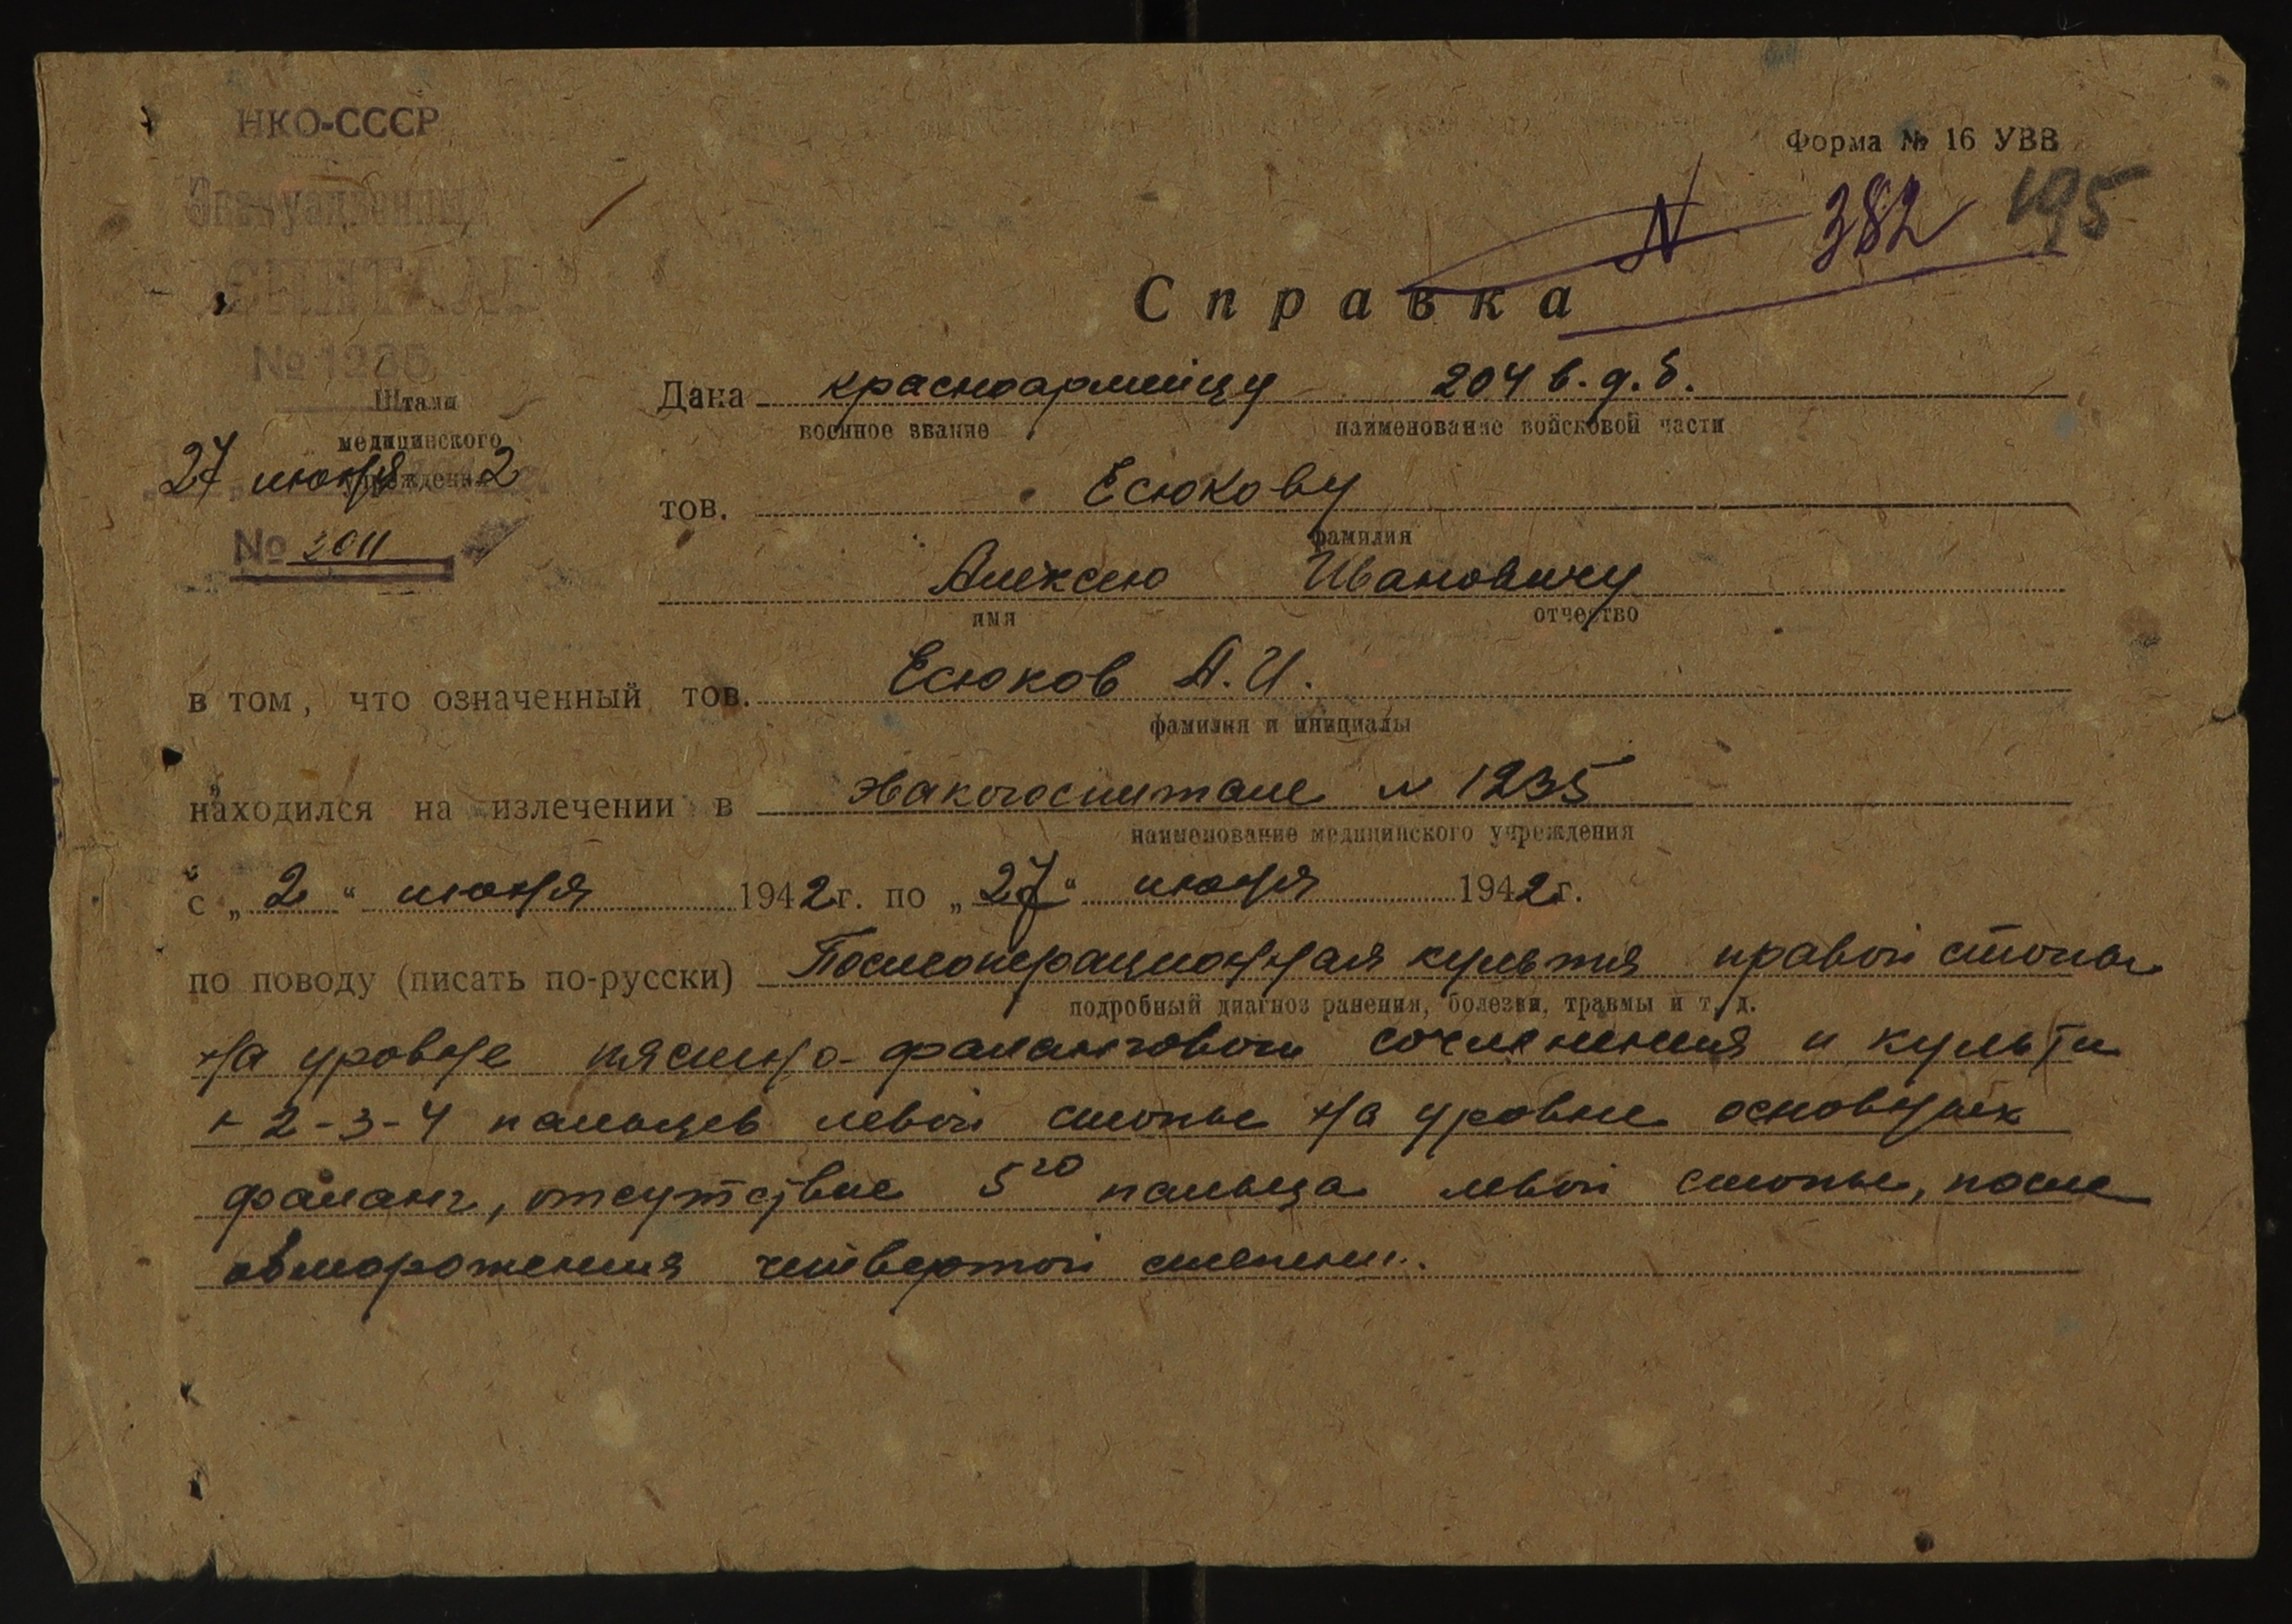 НКО-СССР
Форма № 16 УВВ
Эвакуационный
N 382 195
ГОСПИТАЛЬ
Справка
№ 1235
Штамп
медицинского
учреждения
27 июня 2
№ 2011
Дана красноармейцу 204 в.д.б.
военное звание наименование войсковой части
тов. Есюкову
фамилия
Алексею Ивановичу
имя отчество
в том, что означенный тов. Есюков А.И.
фамилия и инициалы
находился на излечении в эвакогоспитале N 1235
наименование медицинского учреждения
с „2“ июня 1942 г. по „27“ июня 1942 г.
по поводу (писать по-русски) Послеоперационная культя правой стопы
подробный диагноз ранения, болезни, травмы и т. д.
на уровне плюсно-фалангового сочленения и культи
2-3-4 пальцев левой стопы на уровне основных
фаланг, отсутствие 5го пальца левой стопы, после
отморожения четвертой степени.